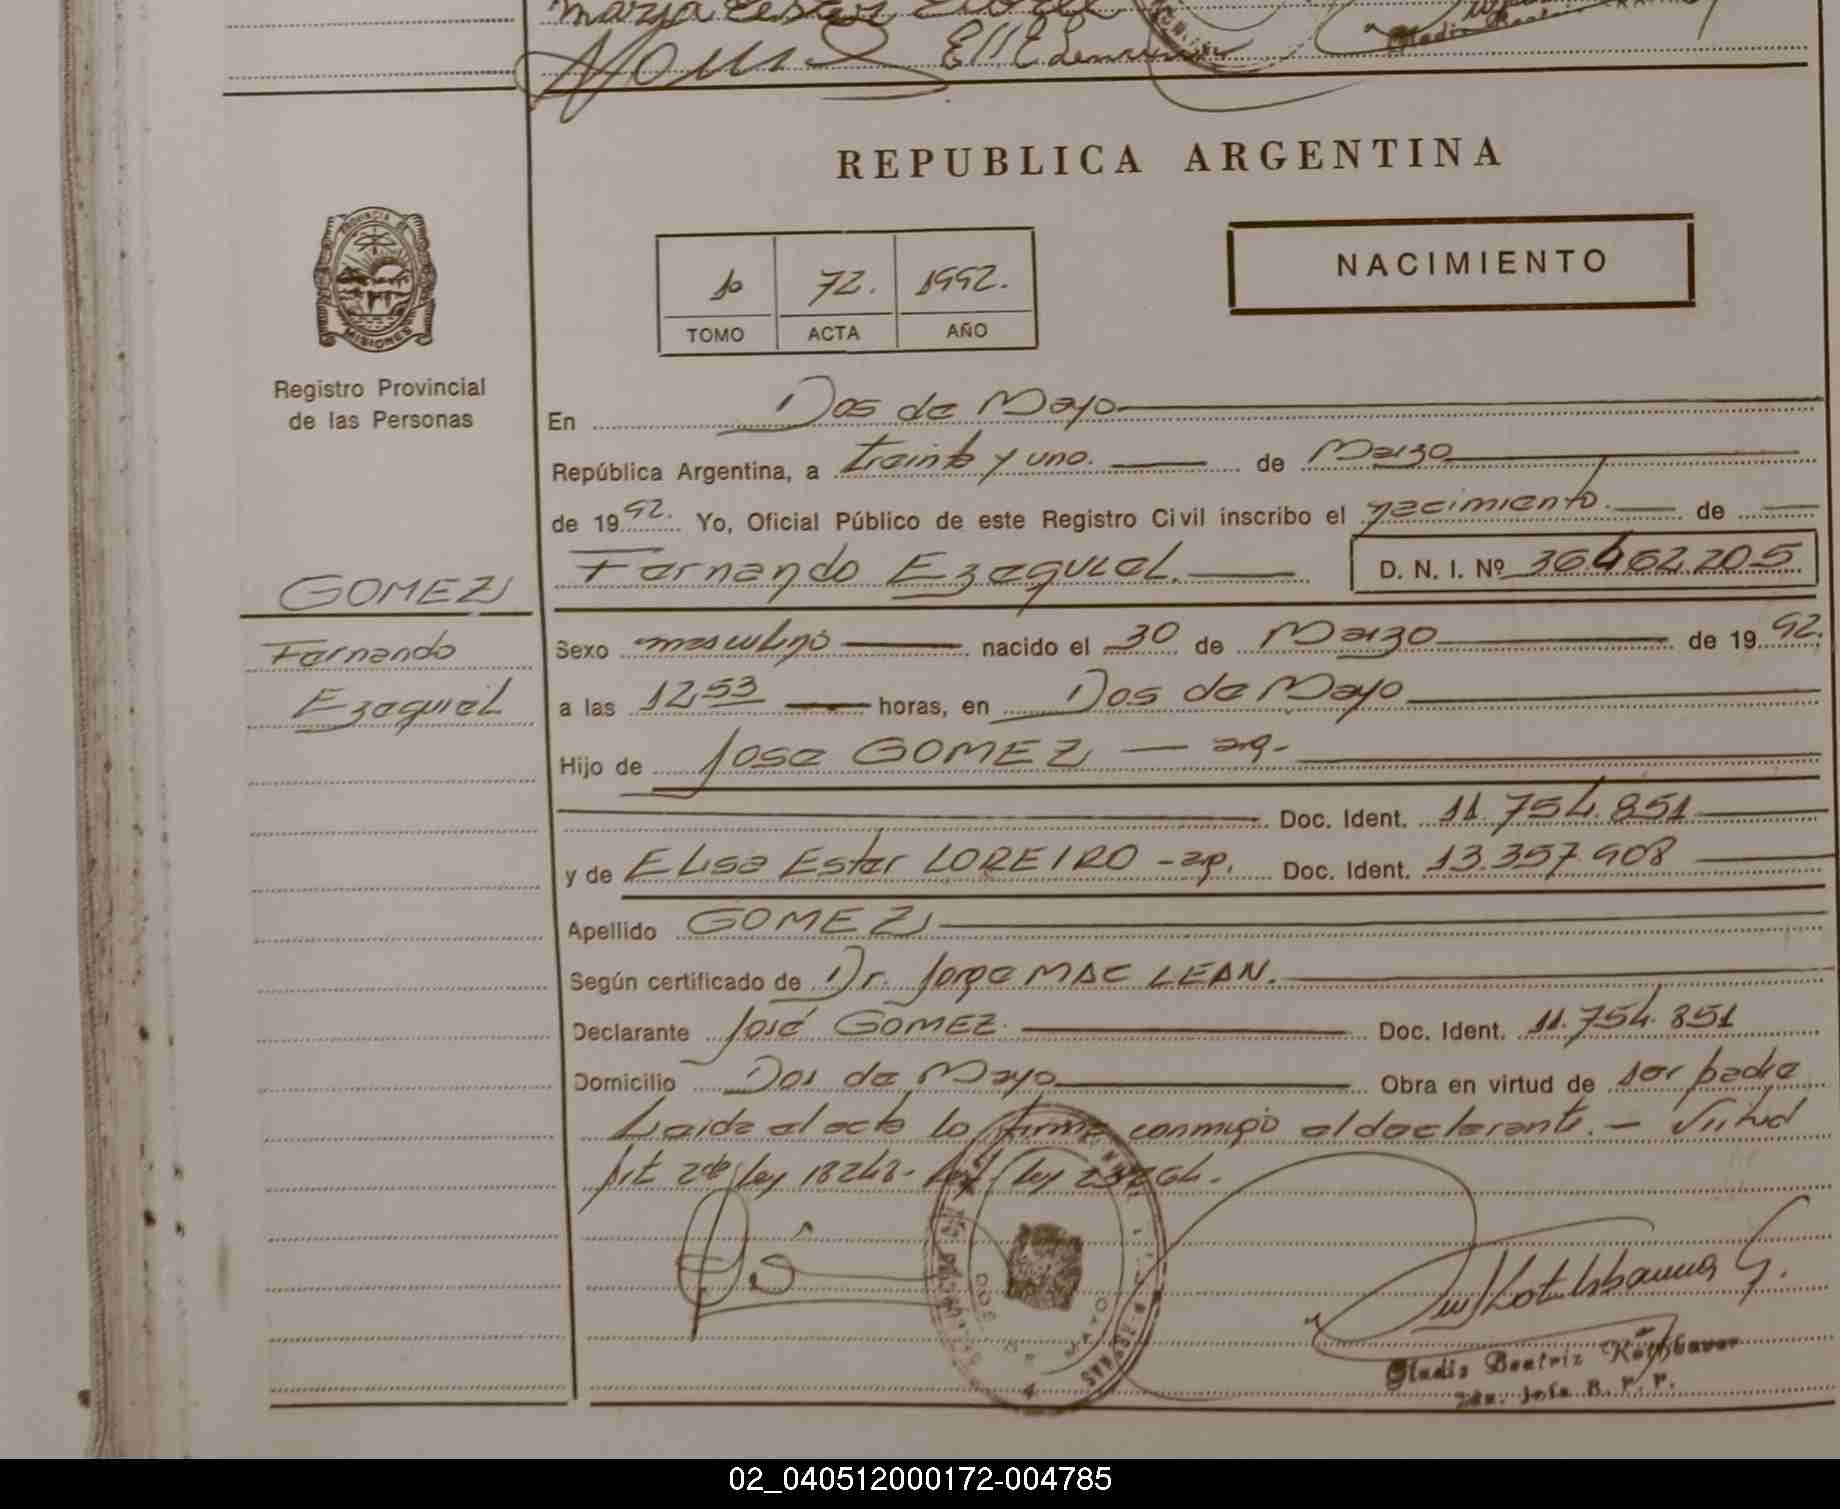 Maria Ester
REPUBLICA ARGENTINA
PROVINCIA DE
MISIONES
1º 72. 1992.
TOMO ACTA AÑO
NACIMIENTO
Registro Provincial
de las Personas
En Dos de Mayo
República Argentina, a treinta y uno. de Marzo
de 1992. Yo, Oficial Público de este Registro Civil inscribo el nacimiento. de
Fernando Ezequiel. D. N. I. Nº 36462205
GOMEZ
Fernando
Ezequiel
Sexo masculino nacido el 30 de Marzo de 1992.
a las 12,53 horas, en Dos de Mayo
Hijo de Jose GOMEZ — arg.
Doc. Ident. 11.754.851
y de Elisa Ester LOREIRO - arg. Doc. Ident. 13.357.908
Apellido GOMEZ
Según certificado de Dr. Jorge MAC LEAN.
Declarante José GOMEZ. Doc. Ident. 11.754.851
Domicilio Dos de Mayo Obra en virtud de ser padre
Leida el acta la firma conmigo el declarante. — Virtud
Art 2 de ley 18248. ley 23264.
DOS DE MAYO
Gladis Beatriz Rothbauer
Jefa R. P. P.
02_040512000172-004785